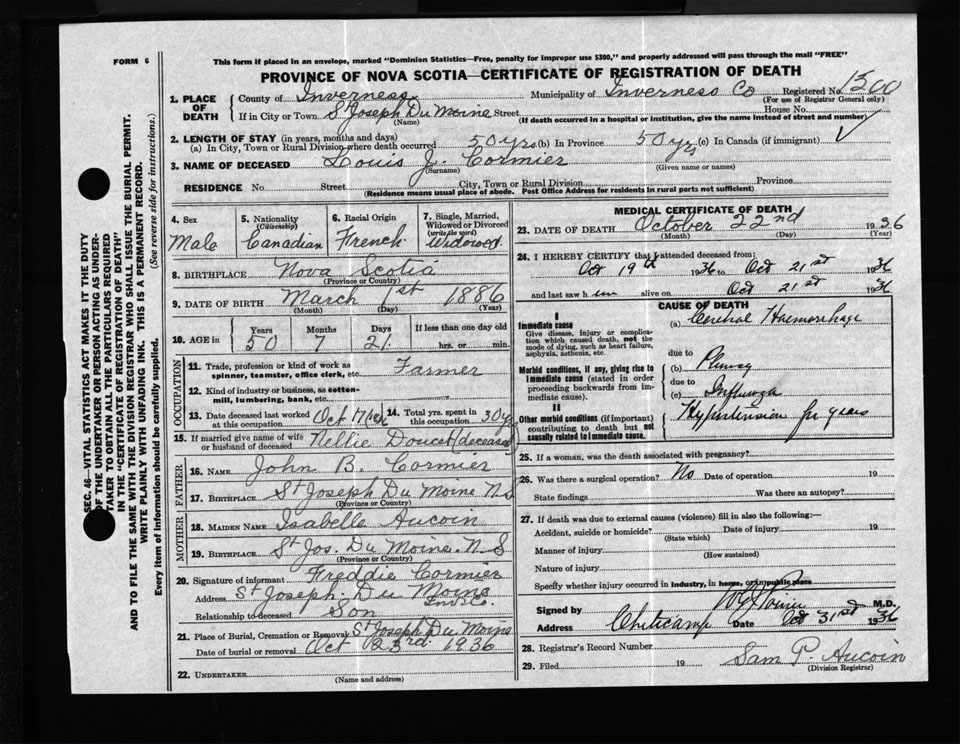 FORM 6
This form if placed in an envelope, marked "Dominion Statistics—Free, penalty for improper use $300," and properly addressed will pass through the mail "FREE"
PROVINCE OF NOVA SCOTIA—CERTIFICATE OF REGISTRATION OF DEATH
1. PLACE OF DEATH County of Inverness Municipality of Inverness Co Registered No. 1500
(For use of Registrar General only)
If in City or Town St Joseph Du Moine Street House No.
(Name) (If death occurred in a hospital or institution, give the name instead of street and number)
2. LENGTH OF STAY (in years, months and days)
(a) In City, Town or Rural Division where death occurred 50 yrs (b) In Province 50 yrs (c) In Canada (if immigrant)
3. NAME OF DECEASED Louis J. Cormier
(Surname) (Given name or names)
RESIDENCE No Street City, Town or Rural Division Province
(Residence means usual place of abode. Post Office Address for residents in rural parts not sufficient)
SEC. 46—VITAL STATISTICS ACT MAKES IT THE DUTY
OF THE UNDERTAKER OR PERSON ACTING AS UNDER-
TAKER TO OBTAIN ALL THE PARTICULARS REQUIRED
IN THE "CERTIFICATE OF REGISTRATION OF DEATH"
AND TO FILE THE SAME WITH THE DIVISION REGISTRAR WHO SHALL ISSUE THE BURIAL PERMIT.
WRITE PLAINLY WITH UNFADING INK. THIS IS A PERMANENT RECORD.
Every item of information should be carefully supplied. (See reverse side for instructions.)
4. Sex Male
5. Nationality (Citizenship) Canadian
6. Racial Origin French
7. Single, Married, Widowed or Divorced (write the word) Widowed
8. BIRTHPLACE Nova Scotia
(Province or Country)
9. DATE OF BIRTH March 1st 1886
(Month) (Day) (Year)
10. AGE in Years 50 Months 7 Days 21 If less than one day old hrs. or min.
OCCUPATION
11. Trade, profession or kind of work as spinner, teamster, office clerk, etc. Farmer
12. Kind of industry or business, as cotton-mill, lumbering, bank, etc.
13. Date deceased last worked at this occupation Oct 17/36 14. Total yrs. spent in this occupation 30 y
15. If married give name of wife or husband of deceased Nellie Doucet (deceased)
FATHER
16. NAME John B. Cormier
17. BIRTHPLACE St Joseph Du Moine N S
(Province or Country)
MOTHER
18. MAIDEN NAME Isabelle Aucoin
19. BIRTHPLACE St Jos. Du Moine. N S
(Province or Country)
20. Signature of informant Freddie Cormier
Address St Joseph Du Moine Inv. Co.
Relationship to deceased Son
21. Place of Burial, Cremation or Removal St Joseph Du Moine
Date of burial or removal Oct 23rd 1936
22. UNDERTAKER
(Name and address)
MEDICAL CERTIFICATE OF DEATH
23. DATE OF DEATH October 22nd 1936
(Month) (Day) (Year)
24. I HEREBY CERTIFY that I attended deceased from:
Oct 19th 1936 to Oct 21st 1936
and last saw h im alive on Oct 21st 1936
CAUSE OF DEATH
I
Immediate cause
Give disease, injury or complication which caused death, not the mode of dying, such as heart failure, asphyxia, asthenia, etc.
(a) Cerebral Haemorrhage
due to
Morbid conditions, if any, giving rise to immediate cause (stated in order proceeding backwards from immediate cause).
(b) Pleurisy
due to
(c) Influenza
II
Other morbid conditions (if important) contributing to death but not causally related to immediate cause.
Hypertension for years
25. If a woman, was the death associated with pregnancy?
26. Was there a surgical operation? No Date of operation 19
State findings Was there an autopsy?
27. If death was due to external causes (violence) fill in also the following:—
Accident, suicide or homicide? Date of injury 19
(State which)
Manner of injury
(How sustained)
Nature of injury
Specify whether injury occurred in industry, in home, or in public place
Signed by M.D.
Address Cheticamp Date Oct 31st 1936
28. Registrar's Record Number
29. Filed 19 Sam P. Aucoin
(Division Registrar)